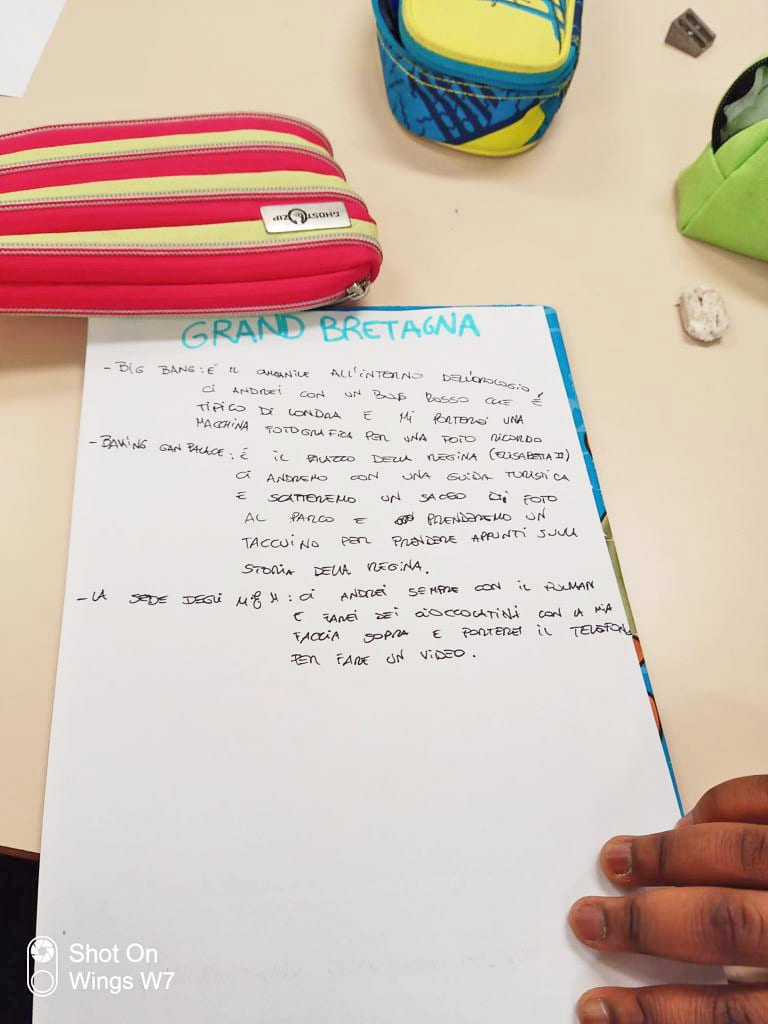 GHOST ZIP
GRAND BRETAGNA
- BIG BANG: É IL CAMPANILE ALL'INTERNO DELL'OROLOGIO,
CI ANDREI CON UN BUS ROSSO CHE É
TIPICO DI LONDRA E MI PORTEREI UNA
MACCHINA FOTOGRAFICA PER UNA FOTO RICORDO
- BAKING GAN PALACE: É IL PALAZZO DELLA REGINA (ELISABETTA II)
CI ANDREMO CON UNA GUIDA TURISTICA
E SCATTEREMO UN SACCO DI FOTO
AL PARCO E PRENDEREMO UN
TACCUINO PER PRENDERE APPUNTI SULLA
STORIA DELLA REGINA.
- LA SEDE DEGLI M&M: CI ANDREI SEMPRE CON IL PULMAN
E FAREI DEI CIOCCOLATINI CON LA MIA
FACCIA SOPRA E PORTEREI IL TELEFONO
PER FARE UN VIDEO.
Shot On
Wings W7